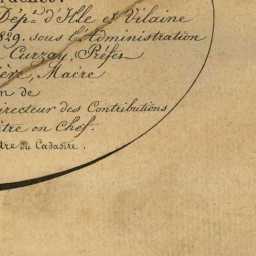 Dép.t d'Ille et Vilaine
1829. sous l'Administration
Curzay, Préfet
Maire
n de
irecteur des Contributions
en Chef.
du Cadastre.